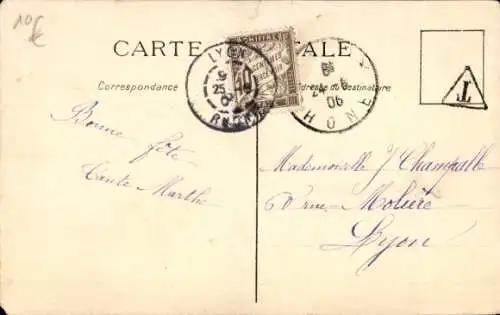 10 €
CARTE POSTALE
Correspondance
Adresse du destinataire
LYON
RHONE
25
06
CHIFFRE
T
Bonne fête
Tante Marthe
Mademoiselle J Champalle
60 rue Molière
Lyon